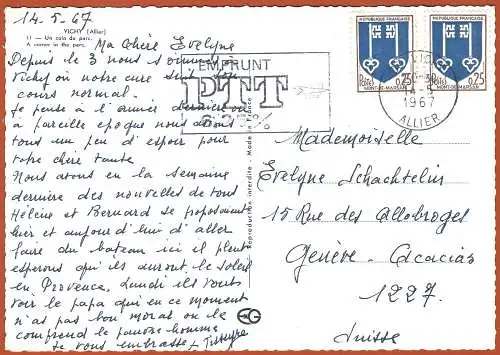 14-5-67
VICHY (Allier)
11 - Un coin du parc.
A corner in the parc.
Ma chère Evelyne
Depuis le 3 nous sommes à
Vichy où notre cure suit son
cours normal.
Je pense à l'année dernière où
à pareille époque nous avions
tous un peu d'espoir pour
votre chère tante
Nous avons eu la semaine
dernière des nouvelles de tous
Hélène et Bernard se proposaient
hier et aujourd'hui d'aller
faire du bateau ici il pleut
esperons qu'ils auront le soleil
en Provence. Lundi ils vont
voir le papa qui en ce moment
n'as pas bon moral on le
comprend le pauvre homme
Je vous embrasse
Reproduction interdite - Made in France
EMPRUNT
PTT
VICHY
14-5
1967
ALLIER
REPUBLIQUE FRANÇAISE
Postes
0,25
MONT-DE-MARSAN
REPUBLIQUE FRANÇAISE
Postes
0,25
MONT-DE-MARSAN
Mademoiselle
Evelyne Schachtelin
15 Rue des Allobroges
Genève - Acacias
1227.
Suisse